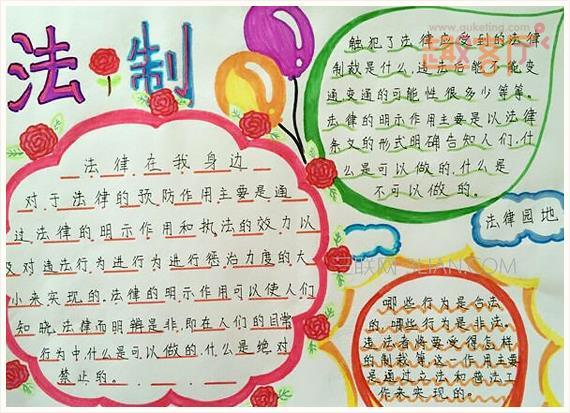 法制
法律在我身边
对于法律的预防作用主要是通
过法律的明示作用和执法的效力以
及对违法行为进行为进行惩治力度的大
小来实现的.法律的明示作用可以使人们
知晓.法律而明辨是非.即在人们的日常
行为中.什么是可以做的.什么是绝对
禁止的。
www.guketing.com
触犯了法律应受到的法律
制裁是什么.违法后能不能变
通.变通的可能性很多少等等。
法律的明示作用主要是以法律
条文的形式明确告知人们.什
么是可以做的.什么是
不可以做的。
法律园地
哪些行为是合法
的.哪些行为是非法.
违法者将要受得怎样
的制裁等.这一作用主要
是通过立法和普法工
作来实现的。